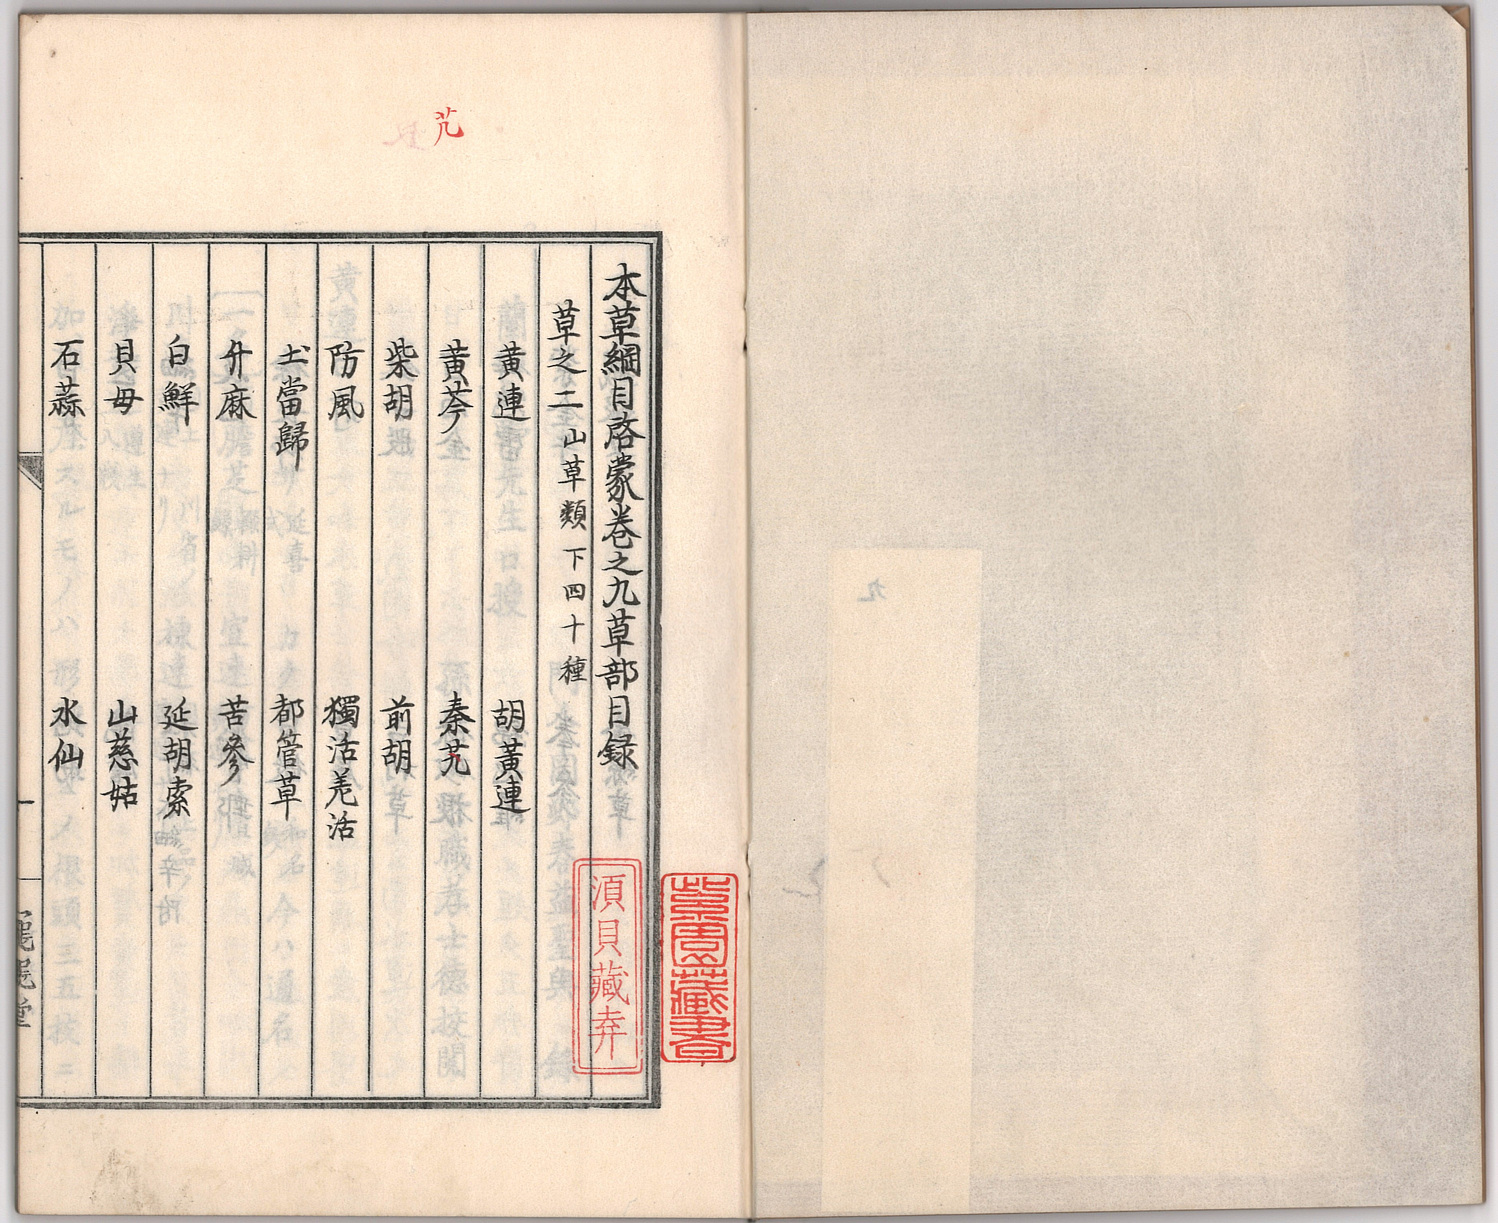 本草綱目啓蒙卷之九草部目録
草之二山草類下四十種
黄連 胡黄連
黄芩 秦艽
柴胡 前胡
防風 獨活羌活
土當歸 都管草
升麻 苦參
白鮮 延胡索
貝母 山慈姑
石蒜 水仙
一
艽
須貝藏弆